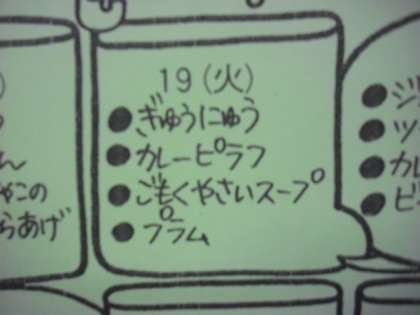 19(火)
●ぎゅうにゅう
●カレーピラフ
●ごもくやさいスープ
●プラム
ん
ゃこの
らあげ
●ツ
●カレ